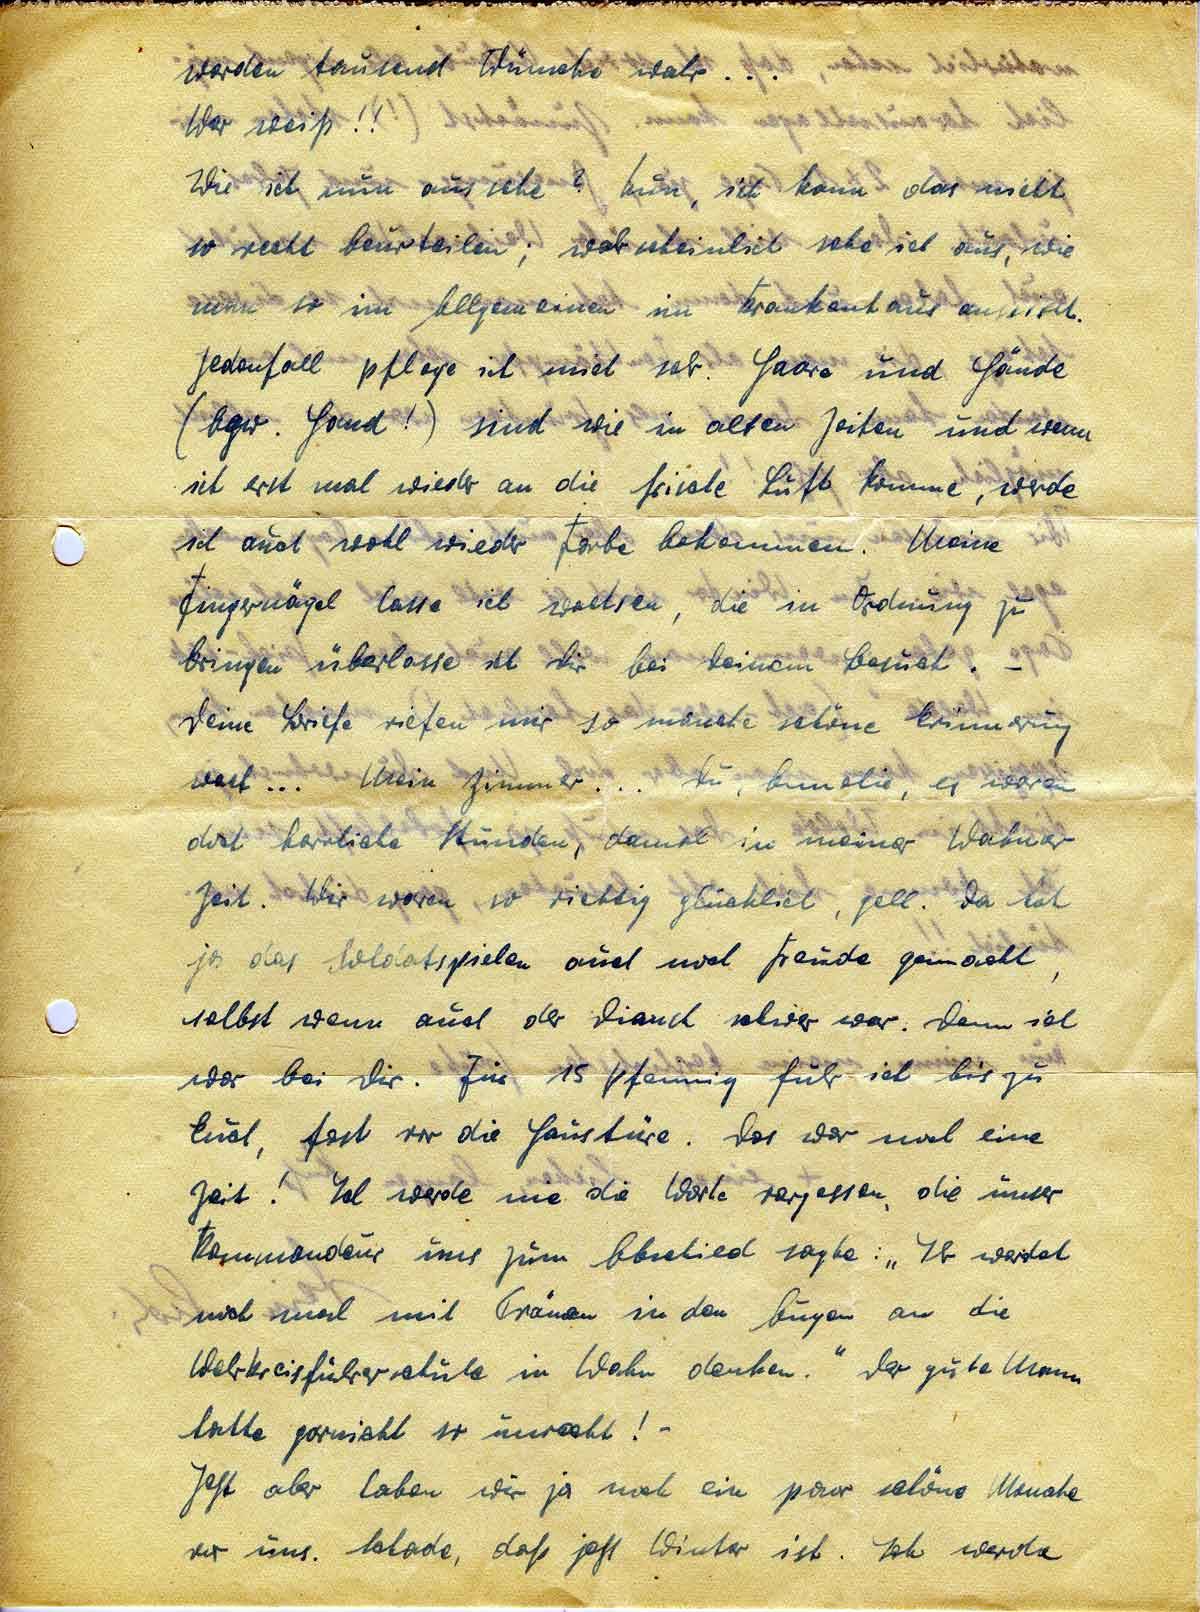 werden tausend Wünsche wahr . . .
Wer weiß !!
Wie ich nun aussehe? Nun, ich kann das nicht
so recht beurteilen; wahrscheinlich sehe ich aus, wie
man so im Allgemeinen im Krankenhaus aussieht.
Jedenfall pflege ich mich sehr. Haare und Hände
(bzw. Hand!) sind wie in alten Zeiten und wenn
ich erst mal wieder an die frische Luft komme, werde
ich auch wohl wieder Farbe bekommen. Meine
Fingernägel lasse ich wachsen, die in Ordnung zu
bringen überlasse ich Dir bei Deinem Besuch. –
Deine Briefe riefen mir so manche schöne Erinnerung
wach... Mein Zimmer... Du, Annelie, es waren
doch herrliche Stunden, damal in meiner Wahner
Zeit. Wir waren so richtig glücklich, gell. Da hat
ja das Soldatspielen auch noch Freude gemacht,
selbst wenn auch der Dienst schwer war. Denn ich
war bei Dir. Für 15 Pfennig fuhr ich bis zu
Euch, fast vor die Haustüre. Das war noch eine
Zeit! Ich werde nie die Worte vergessen, die unser
Kommandeur uns zum Abschied sagte: „Ihr werdet
noch mal mit Tränen in den Augen an die
Wehrkreisführerschule in Wahn denken." Der gute Mann
hatte garnicht so unrecht! –
Jetzt aber haben wir ja noch ein paar schöne Monate
vor uns. Schade, daß jetzt Winter ist. Ich werde